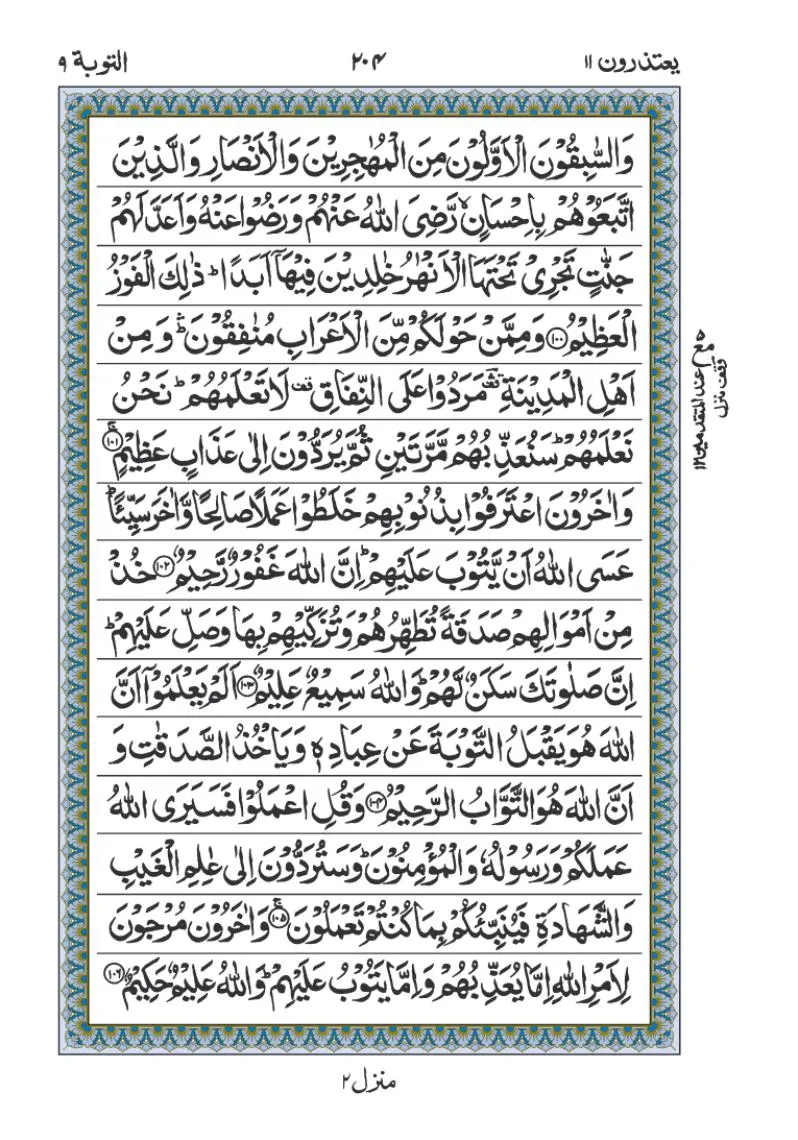 يعتذرون ۱۱ ۲۰۴ التوبة ۹
وَالسّٰبِقُوْنَ الْاَوَّلُوْنَ مِنَ الْمُهٰجِرِيْنَ وَالْاَنْصَارِ وَالَّذِيْنَ
اتَّبَعُوْهُمْ بِاِحْسَانٍ ۙ رَّضِيَ اللّٰهُ عَنْهُمْ وَرَضُوْا عَنْهُ وَاَعَدَّ لَهُمْ
جَنّٰتٍ تَجْرِيْ تَحْتَهَا الْاَنْهٰرُ خٰلِدِيْنَ فِيْهَآ اَبَدًا ؕ ذٰلِكَ الْفَوْزُ
الْعَظِيْمُ ﴿۱۰۰﴾ وَمِمَّنْ حَوْلَكُمْ مِّنَ الْاَعْرَابِ مُنٰفِقُوْنَ ؕۛ وَمِنْ
اَهْلِ الْمَدِيْنَةِ ؔۛ مَرَدُوْا عَلَى النِّفَاقِ قف لَا تَعْلَمُهُمْ ؕ نَحْنُ
نَعْلَمُهُمْ ؕ سَنُعَذِّبُهُمْ مَّرَّتَيْنِ ثُمَّ يُرَدُّوْنَ اِلٰى عَذَابٍ عَظِيْمٍ ۚ﴿۱۰۱﴾
وَاٰخَرُوْنَ اعْتَرَفُوْا بِذُنُوْبِهِمْ خَلَطُوْا عَمَلًا صَالِحًا وَّاٰخَرَ سَيِّئًا ؕ
عَسَى اللّٰهُ اَنْ يَّتُوْبَ عَلَيْهِمْ ؕ اِنَّ اللّٰهَ غَفُوْرٌ رَّحِيْمٌ ﴿۱۰۲﴾ خُذْ
مِنْ اَمْوَالِهِمْ صَدَقَةً تُطَهِّرُهُمْ وَتُزَكِّيْهِمْ بِهَا وَصَلِّ عَلَيْهِمْ ؕ
اِنَّ صَلٰوتَكَ سَكَنٌ لَّهُمْ ؕ وَاللّٰهُ سَمِيْعٌ عَلِيْمٌ ﴿۱۰۳﴾ اَلَمْ يَعْلَمُوْٓا اَنَّ
اللّٰهَ هُوَ يَقْبَلُ التَّوْبَةَ عَنْ عِبَادِهٖ وَيَاْخُذُ الصَّدَقٰتِ وَ
اَنَّ اللّٰهَ هُوَ التَّوَّابُ الرَّحِيْمُ ﴿۱۰۴﴾ وَقُلِ اعْمَلُوْا فَسَيَرَى اللّٰهُ
عَمَلَكُمْ وَرَسُوْلُهٗ وَالْمُؤْمِنُوْنَ ؕ وَسَتُرَدُّوْنَ اِلٰى عٰلِمِ الْغَيْبِ
وَالشَّهَادَةِ فَيُنَبِّئُكُمْ بِمَا كُنْتُمْ تَعْمَلُوْنَ ۚ﴿۱۰۵﴾ وَاٰخَرُوْنَ مُرْجَوْنَ
لِاَمْرِ اللّٰهِ اِمَّا يُعَذِّبُهُمْ وَاِمَّا يَتُوْبُ عَلَيْهِمْ ؕ وَاللّٰهُ عَلِيْمٌ حَكِيْمٌ ﴿۱۰۶﴾
مع عند المتقدمين ۱۲
وقف منزل
منزل ۲